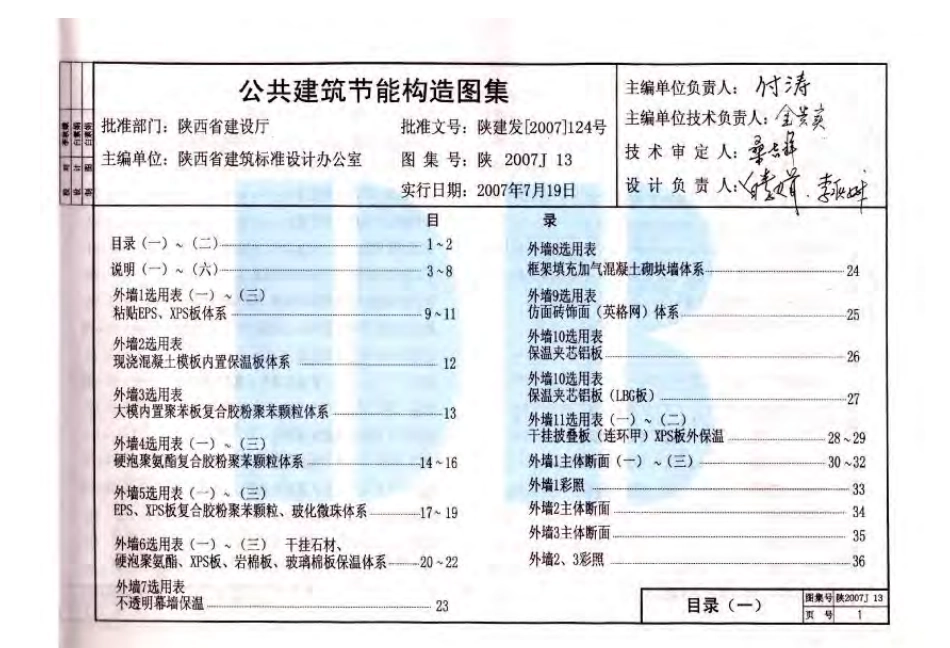 公共建筑节能构造图集
批准部门：陕西省建设厅
批准文号：陕建发[2007]124号
主编单位：陕西省建筑标准设计办公室
图 集 号：陕 2007J 13
实行日期：2007年7月19日
主编单位负责人：付涛
主编单位技术负责人：
技 术 审 定 人：
设 计 负 责 人：
目 录
目录（一）~（二） 1~2
说明（一）~（六） 3~8
外墙1选用表（一）~（三）
粘贴EPS、XPS板体系 9~11
外墙2选用表
现浇混凝土模板内置保温板体系 12
外墙3选用表
大模内置聚苯板复合胶粉聚苯颗粒体系 13
外墙4选用表（一）~（三）
硬泡聚氨酯复合胶粉聚苯颗粒体系 14~16
外墙5选用表（一）~（三）
EPS、XPS板复合胶粉聚苯颗粒、玻化微珠体系 17~19
外墙6选用表（一）~（三） 干挂石材、
硬泡聚氨酯、XPS板、岩棉板、玻璃棉板保温体系 20~22
外墙7选用表
不透明幕墙保温 23
外墙8选用表
框架填充加气混凝土砌块墙体系 24
外墙9选用表
仿面砖饰面（英格网）体系 25
外墙10选用表
保温夹芯铝板 26
外墙10选用表
保温夹芯铝板（LBG板） 27
外墙11选用表（一）~（二）
干挂披叠板（连环甲）XPS板外保温 28~29
外墙1主体断面（一）~（三） 30~32
外墙1彩照 33
外墙2主体断面 34
外墙3主体断面 35
外墙2、3彩照 36
目录（一）
图集号 陕2007J 13
页 号 1